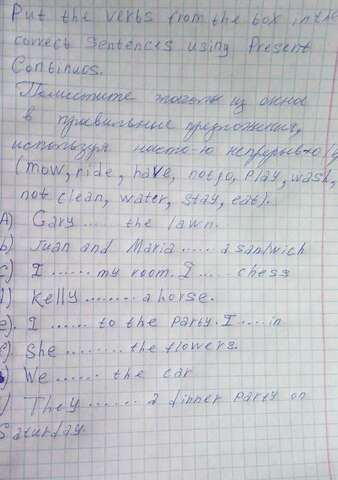 Put the verbs from the box in the
correct sentences using Present
Continuos.
Поместите глаголы из окна
в правильные предложения,
используя
(mow, ride, have, not go, play, wash,
not clean, water, stay, eat).
A) Gary ..... the lawn.
b) Juan and Maria ..... a sandwich
c) I ...... my room. I ..... chess
d) Kelly ........ a horse.
e). I ...... to the party. I .... in
f). She ......... the flowers.
) We ...... the car
) They ...... a dinner party on
Saturday